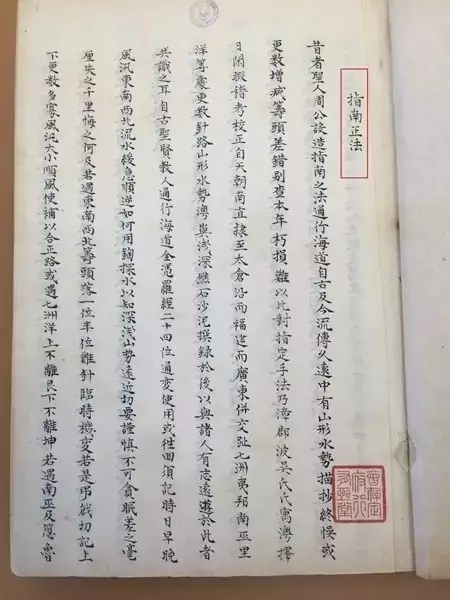 指南正法
昔者聖人周公設造指南之法通行海道自古及今流傳久遠中有山形水勢描抄終悞或
更數增減籌頭差錯別查本年朽損難以比對指定手法乃漳郡波吳氏氏寓澳擇
日閑暇稽考校正自天朝南直隸至太倉沿而福建而廣東併交趾七洲夷邦南巫里
洋等處更數針路山形水勢澳與淺深礁石沙泥撰錄於後以與諸人有志遠遊於此者
共識之耳自古聖賢教人通行海道全憑羅經二十四位通變使用或往回須記時日早晚
風汛東南西北流水緩急順逆如何用鉤探水以知深淺山勢遠近切要謹慎不可貪眠差之毫
厘失之千里悔之何及若遇東南西北籌頭落一位半位難針臨時機變若是吊戧切記上
下更數多寡風汛大小順風使補以合正路或遇七洲洋上不離艮下不離坤 若遇南巫及魯